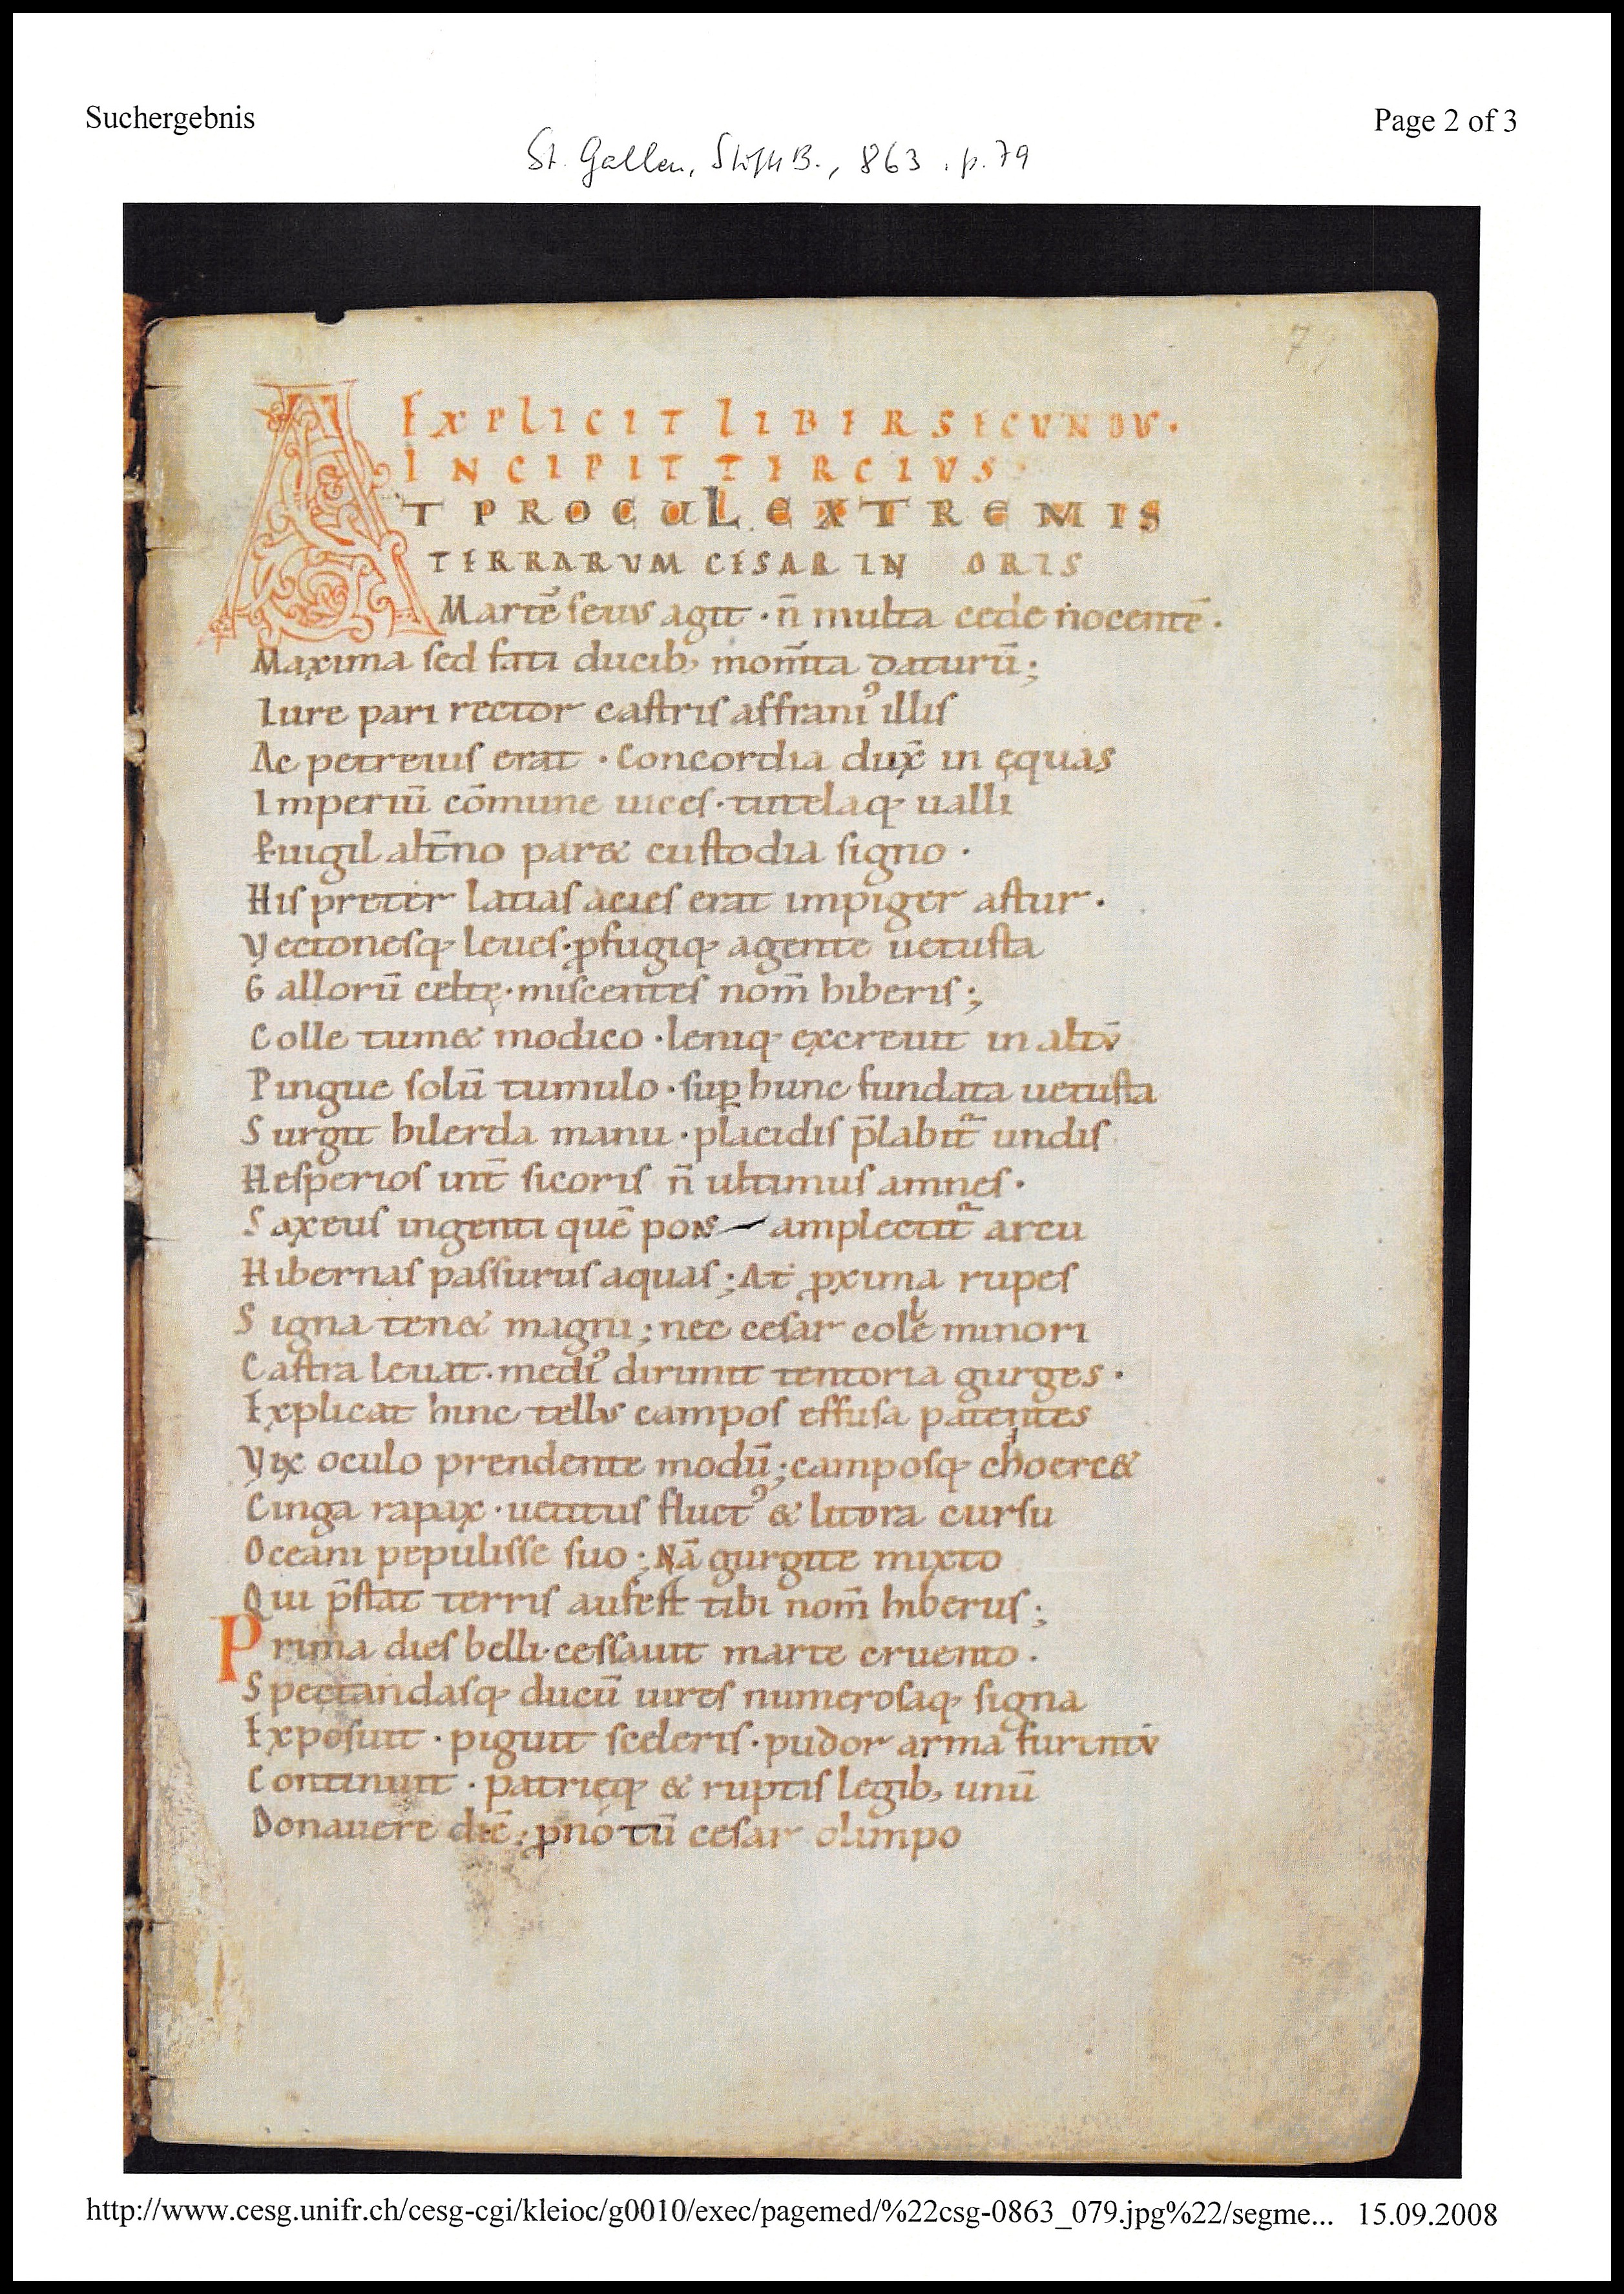 Suchergebnis
Page 2 of 3
St. Gallen, StiftsB., 863, p. 79
79
EXPLICIT LIBER SECUNDUS.
INCIPIT TERCIVS
AT PROCUL EXTREMIS
TERRARVM CESAR IN ORIS
Martẽ seuus agit · n̄ multa cede nocentẽ ·
Maxima sed fati ducib; mom̄ta daturū;
Iure pari rector castris affraniꝰ illis
Ac petreius erat · Concordia dux̄ in ęquas
Imperiū cōmune uices · tutelaq; ualli
Puigil alt̄no paret custodia signo ·
His preter latias acies erat impiger astur ·
Vectonesq; leues · ꝓfugiq; agente uetusta
Gallorū celtę · miscentes nom̄ hiberis;
Colle tumet modico · leniq; excreuit in altū
Pingue solū tumulo · suꝑ hunc fundata uetusta
Surgit hilerda manu · placidis p̄labit̄ undis
Hesperios int̄ sicoris n̄ ultimus amnes ·
Saxeus ingenti quē pons amplectit̄ arcu
Hibernas passurus aquas; At ꝓxima rupes
Signa tenet magni; nec cesar colle minori
Castra leuat · mediꝰ dirimit tentoria gurges ·
Explicat hinc tellus campos effusa patentes
Vix oculo prendente modū; camposq; choercet
Cinga rapax · uetitus fluctꝰ & litora cursu
Oceani pepulisse suo; Nā gurgite mixto
Qui p̄stat terris aufert tibi nom̄ hiberus;
Prima dies belli · cessauit marte cruento ·
Spectandasq; ducū uires numerosaq; signa
Exposuit · piguit sceleris · pudor arma furentū
Continuit · patrięq; & ruptis legib; unū
Donauere diē; ꝓno tū cesar olimpo
http://www.cesg.unifr.ch/cesg-cgi/kleioc/g0010/exec/pagemed/%22csg-0863_079.jpg%22/segme... 15.09.2008